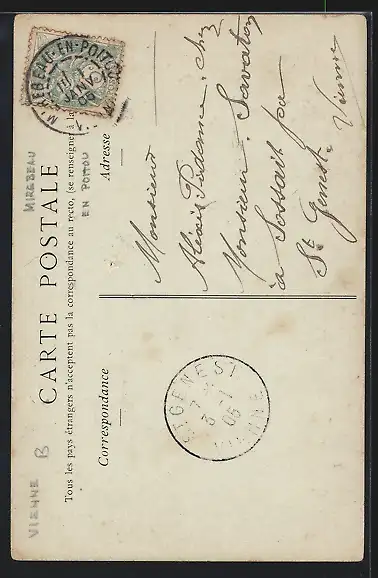 CARTE POSTALE
Tous les pays étrangers n'acceptent pas la correspondance au recto, (se renseigner à la
Correspondance
Adresse
MIREBEAU-EN-POITOU
Monsieur
Alexis chez
Monsieur Savaton
à Sossait par
St Genest Vienne
ST GENEST
7
5 - 1
05
VIENNE
VIENNE
B
MIRABEAU
EN POITOU